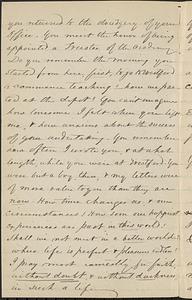 you returned to the drudgery of your
office. You merit the honor of being
appointed a Trustee of the Academy
Do you remember the morning you
started from here, first, to go to Westford
to commence teaching? how we par
ted at the depot? You can't imagine
how lonesome I felt when you left
me, & how anxious about the success
of your undertaking. You remember
how often I wrote you, & at what
length, while you were at Westford. You
were but a boy then, & my letters were
of more value to you than they are
now. How time changes us, & our
circumstances! How soon our happiest
experiences are past in this world!
Shall we not meet in a better world
where life is perfect & pleasures endless?
I may most earnestly, in faith,
without doubt, & without darkness
in such a life.